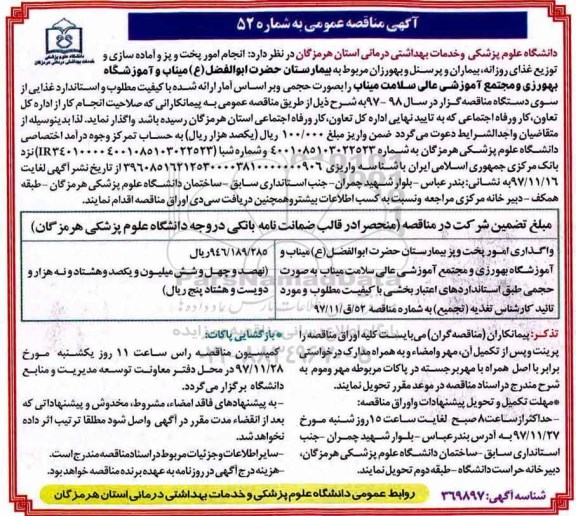 آگهی مناقصه عمومی به شماره ۵۲
دانشگاه علوم پزشکی
خدمات بهداشتی درمانی هرمزگان
دانشگاه علوم پزشکی وخدمات بهداشتی درمانی استان هرمزگان در نظر دارد: انجام امور پخت و پز و آماده سازی و
توزیع غذای روزانه، بیماران و پرسنل و بهورزان مربوط به بیمارستان حضرت ابوالفضل (ع) میناب و آموزشگاه
بهورزی و مجتمع آموزشی عالی سلامت میناب را بصورت حجمی و بر اساس آمار ارائه شده با کیفیت مطلوب و استاندارد غذایی از
سوی دستگاه مناقصه گزار در سال ۹۸ -۹۷ به شرح ذیل از طریق مناقصه عمومی به پیمانکارانی که صلاحیت انجام کار از اداره کل
تعاون، کار ورفاه اجتماعی که به تایید نهایی اداره کل تعاون، کار ورفاه اجتماعی استان هرمزگان رسیده باشد واگذار نماید. لذا بدینوسیله از
متقاضیان واجدالشرایط دعوت می گردد ضمن واریز مبلغ ۱۰۰/۰۰۰ ریال (یکصد هزار ریال) به حساب تمرکز وجوه درآمد اختصاصی
دانشگاه علوم پزشکی هرمزگان به شماره ۴۰۰۱۰۸۵۱۰۳۰۲۲۵۲۳ و شماره شبا (IR۳۴۰۱۰۰۰۰۴۰۰۱۰۸۵۱۰۳۰۲۲۵۲۳) نزد
بانک مرکزی جمهوری اسلامی ایران با شناسه واریزی ۳۹۶۰۸۵۱۶۲۱۲۵۳۰۰۰۰۳۸۱۰۰۰۰۰۰۰۹۰۶ از تاریخ نشر آگهی لغایت
۹۷/۱۱/۱۶ به نشانی: بندرعباس - بلوار شهید چمران - جنب استانداری سابق - ساختمان دانشگاه علوم پزشکی هرمزگان - طبقه
همکف - دبیر خانه مرکزی مراجعه ونسبت به کسب اطلاعات بیشتر و همچنین دریافت سی دی اوراق مناقصه اقدام نمایند.
مبلغ تضمین شرکت در مناقصه (منحصرا در قالب ضمانت نامه بانکی در وجه دانشگاه علوم پزشکی هرمزگان)
واگذاری امور پخت وپز بیمارستان حضرت ابوالفضل (ع) میناب و
آموزشگاه بهورزی و مجتمع آموزشی عالی سلامت میناب به صورت
حجمی طبق استانداردهای اعتبار بخشی با کیفیت مطلوب و مورد
تائید کارشناس تغذیه (تجمیع) به شماره مناقصه ۵۲/ق/۹۷/۱۱
۹۴۶/۱۸۹/۲۸۵ ریال
(نهصد و چهل و شش میلیون و یکصد و هشتاد و نه هزار و
دویست و هشتاد پنج ریال)
تذکر: پیمانکاران (مناقصه گران) می بایست کلیه اوراق مناقصه را
پرینت وپس از تکمیل آن، مهر وامضاء و به همراه مدارک درخواستی
برابر با اصل همراه با مهر برجسته در پاکات مربوطه مهر وموم به
شرح مندرج در اسناد مناقصه در موعد مقرر تحویل نمایند.
*مهلت تکمیل و تحویل پیشنهادات واوراق مناقصه:
-حداکثر از ساعت ۸ صبح لغایت ساعت ۱۵ روز شنبه مورخ
۹۷/۱۱/۲۷ به آدرس بندرعباس - بلوار شهید چمران - جنب
استانداری سابق - ساختمان دانشگاه علوم پزشکی هرمزگان،
دبیر خانه حراست دانشگاه - طبقه دوم تحویل نمایند.
*بازگشایی پاکات:
کمیسیون مناقصه راس ساعت ۱۱ روز یکشنبه مورخ
۹۷/۱۱/۲۸ در محل دفتر معاونت توسعه مدیریت و منابع
دانشگاه برگزار می گردد.
- به پیشنهادهای فاقد امضاء، مشروط، مخدوش و پیشنهاداتی که
بعد از انقضاء مدت مقرر در آگهی واصل شود مطلقا ترتیب اثر داده
نخواهد شد.
-سایر اطلاعات و جزئیات مربوط در اسناد مناقصه مندرج است.
-هزینه درج آگهی در روزنامه به عهده برنده مناقصه خواهد بود.
شناسه آگهی: ۳۶۹۸۹۷
روابط عمومی دانشگاه علوم پزشکی و خدمات بهداشتی درمانی استان هرمزگان